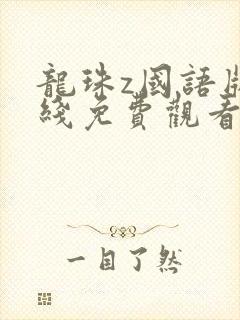 龍珠z國語
綫免費觀看
一目了然